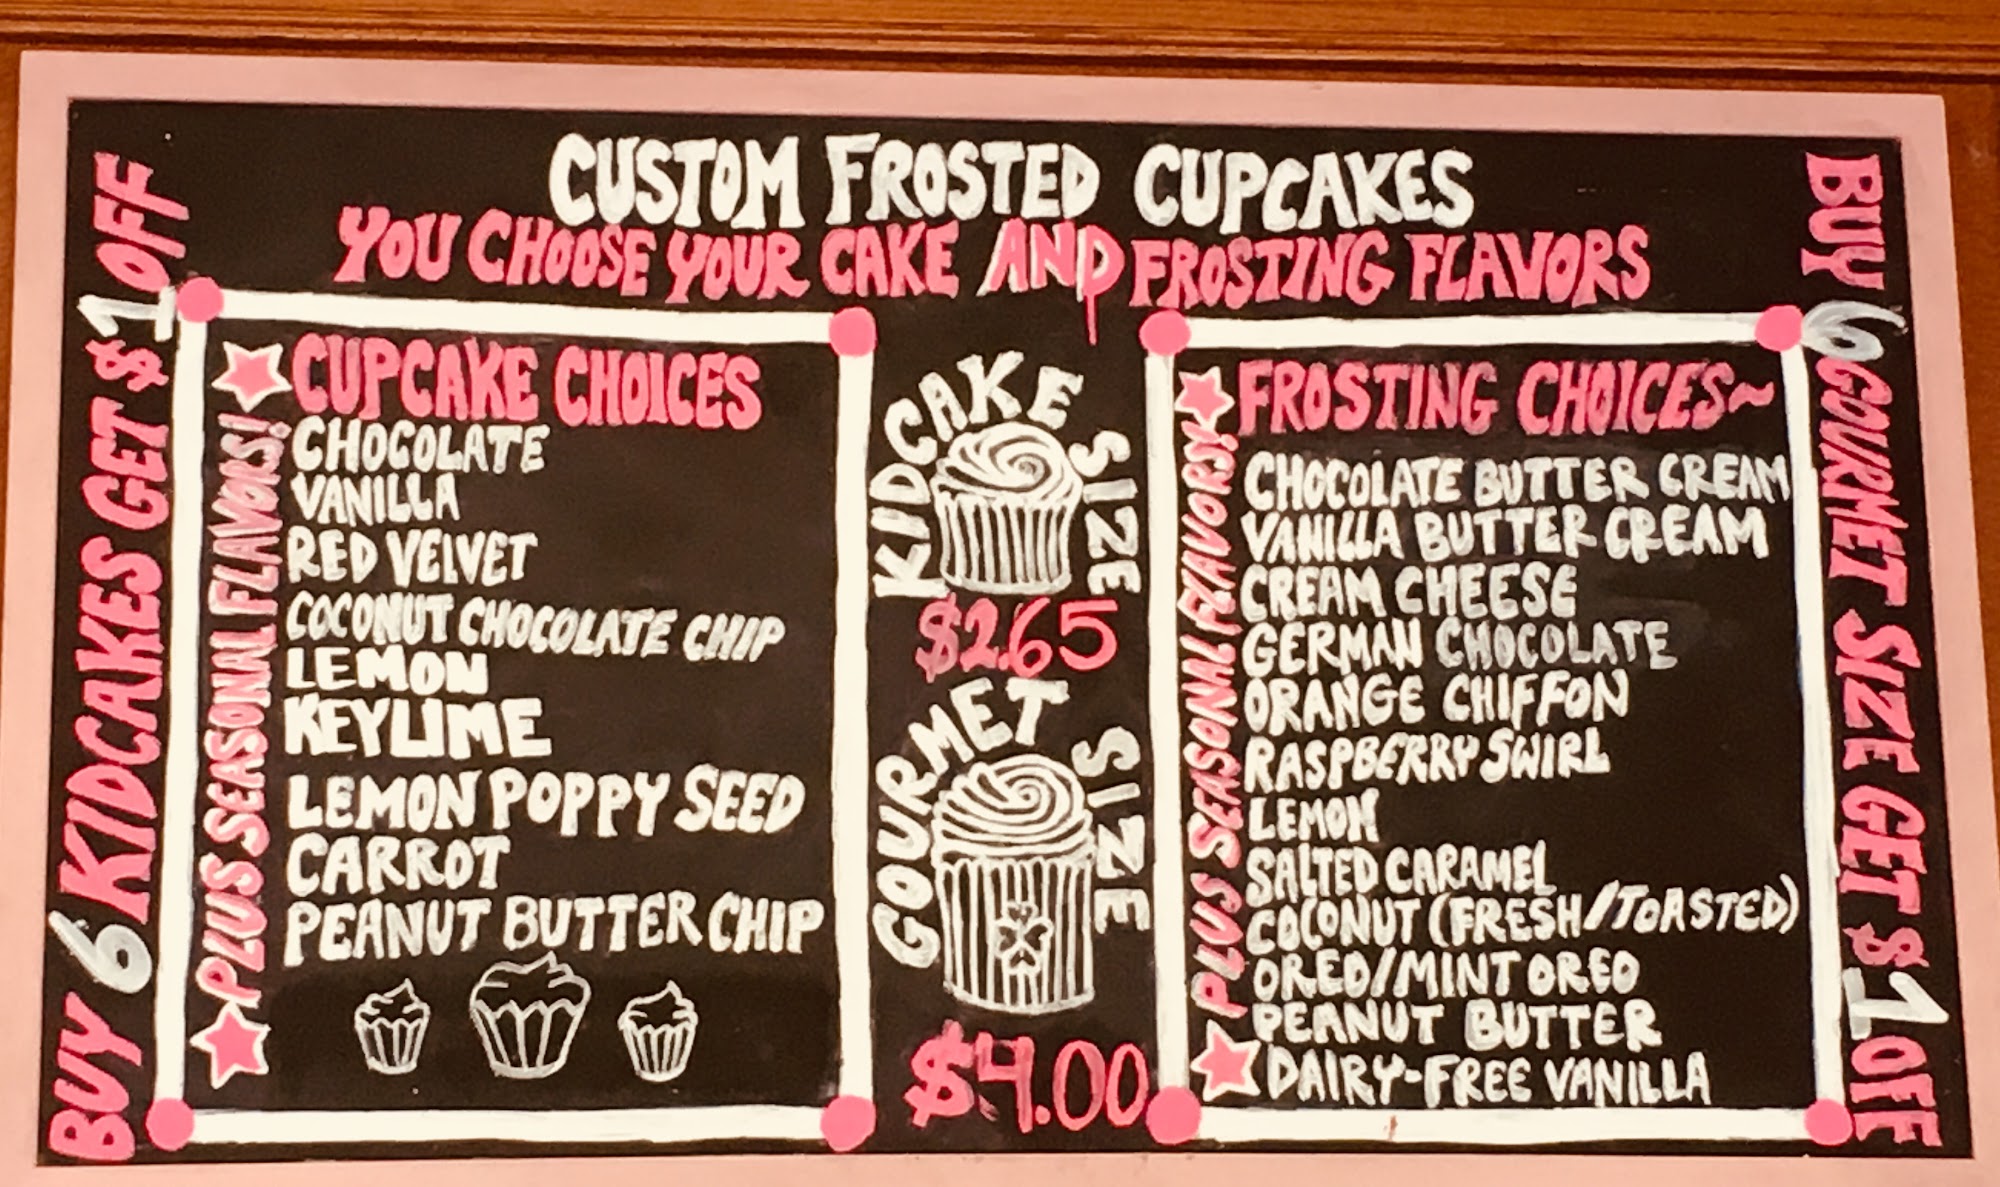 CUSTOM FROSTED CUPCAKES
YOU CHOOSE YOUR CAKE AND FROSTING FLAVORS
BUY 6 KIDCAKES GET $1 OFF
CUPCAKE CHOICES
PLUS SEASONAL FLAVORS!
CHOCOLATE
VANILLA
RED VELVET
COCONUT CHOCOLATE CHIP
LEMON
KEYLIME
LEMON POPPY SEED
CARROT
PEANUT BUTTER CHIP
KIDCAKE SIZE
$2.65
GOURMET SIZE
$4.00
FROSTING CHOICES~
PLUS SEASONAL FLAVORS!
CHOCOLATE BUTTER CREAM
VANILLA BUTTER CREAM
CREAM CHEESE
GERMAN CHOCOLATE
ORANGE CHIFFON
RASPBERRY SWIRL
LEMON
SALTED CARAMEL
COCONUT (FRESH/TOASTED)
OREO/MINT OREO
PEANUT BUTTER
DAIRY-FREE VANILLA
BUY 6 GOURMET SIZE GET $1 OFF